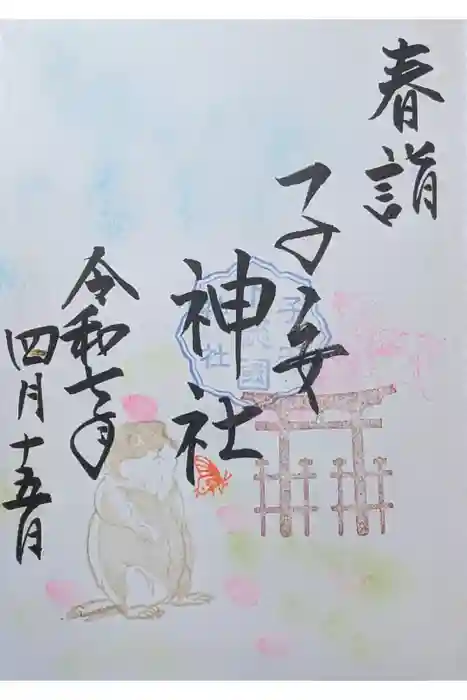 春詣
子安
神社
令和七年
四月十五日